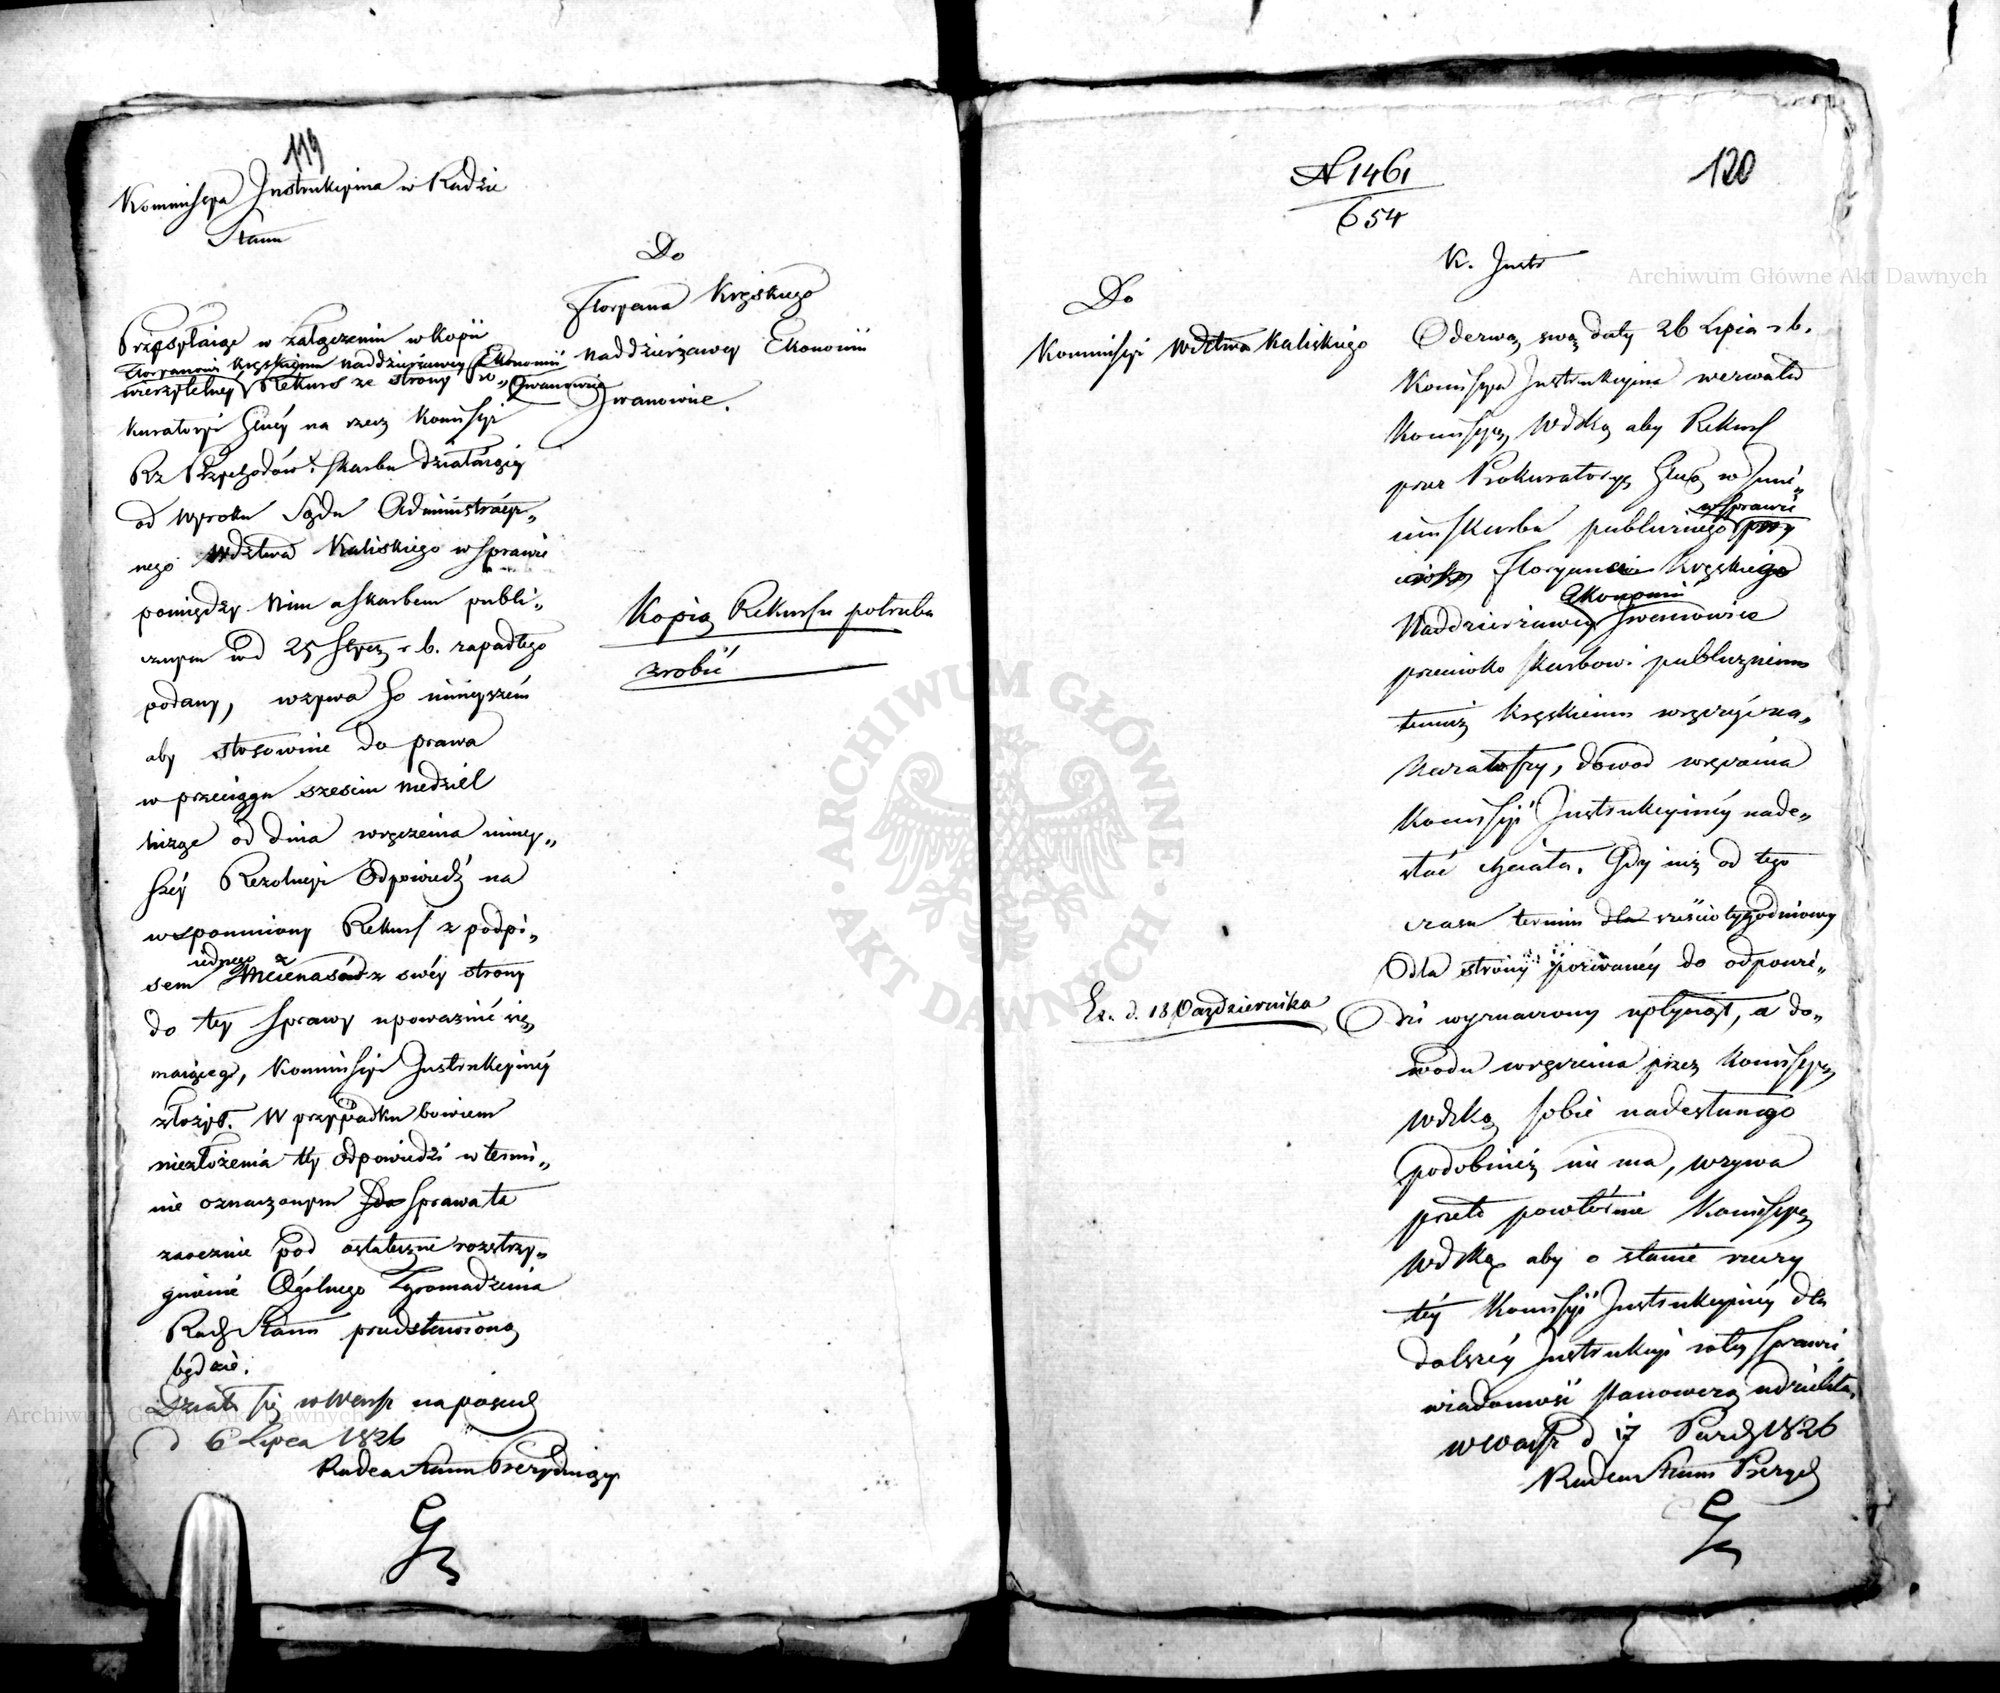 119
Kommissya Instrukcyina w Radzie
Stanu
Do
Floryana Kręskiego
naddzierżawcy Ekonomii
Iwanowice.
Przesyłaiąc w załączeniu w kopii
Floryanowi Kręskiemu naddzierżawcy Ekonomii
Iwanowice
wierzytelney Rekurs ze strony
kuratoryi Głney na rzecz Komissyi
Rz Przychodów i Skarbu działaiącey
od wyroku Sądu Administracyi„
nego Wdztwa Kaliskiego w sprawie
pomiędzy Nim a skarbem publi„
cznym pod 25 Stycz r. b. zapadłego
podany, wzywa Go nineyszém
aby stosownie do prawa
w przeciągu sześciu niedziel
licząc od dnia wręczenia niney„
széy Rezolucyi Odpowiedź na
wspomniony Rekurs z podpi„
iednego z
sem Mecenasów z swéy strony
do tey sprawy upoważnić się
maiącego, Kommissyi Instrukcyinéy
złożył. W przypadku bowiem
niezłożenia tey odpowiedzi w termi„
nie oznaczonym sprawa ta
zaocznie pod ostateczne rozstrzy„
gnienie Ogólnego Zgromadzenia
Rady Stanu przedstawioną
będzie.
Działo się w Warsz na posied
d 6 Lipca 1826
Radca Stanu Prezyduiący
Kopią Rekursu potrzeba
zrobić
120
N 1461
654
K. Instr
Do
Kommissyi Wdztwa Kaliskiego
Odezwą swą daty 26 Lipca r b.
Komissya Instrukcyina wezwała
Komissyą Wdzką aby Rekurs
przez Prokuratoryą Głną w Imie„
niu skarbu publicznego
w sprawie
Floryana Kręskiego
Ekonomii
Naddzierżawcy Iwanowice
przeciwko skarbowi publicznemu
temuż Kręskiemu wręczyć na„
kazała, dowod wręczenia
Komissyi Instrukcyinéy nade„
słać chciała. Gdy iuż od tego
czasu termin dla sześciotygodniowy
dla strony pozwanéy do odpowie„
dzi wyznaczony upłynął, a do„
wodu wręczenia przez Komissyą
Wdzką sobie nadesłanego
podobnież nie ma, wzywa
przeto powtórnie Komissyą
Wdzką aby o stanie rzeczy
téy Komissyi Instrukcyinéy dla
dalszéy Instrukcyi w téy sprawie
wiadomość stanowczą udzieliła.
w Warsz d 17 Paźdz 1826
Radca Stanu Prezyd
Ex. d. 18 Października
Archiwum Główne Akt Dawnych
ARCHIWUM GŁÓWNE
AKT DAWNYCH
Archiwum Główne Akt Dawnych